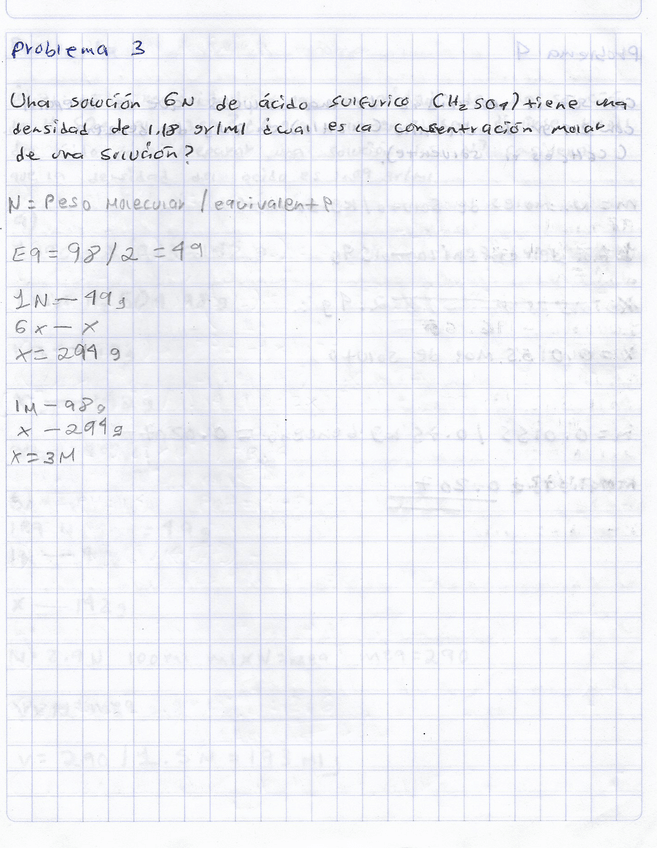 Problema 3
Una solución 6N de ácido sulfurico (H2SO4) tiene una
densidad de 1.18 gr/ml ¿cual es la consentración molar
de una solución?
N = Peso Molecular / equivalente
Eq = 98/2 = 49
1N — 49g
6x — x
x = 294 g
1M — 98g
x — 294g
x = 3M